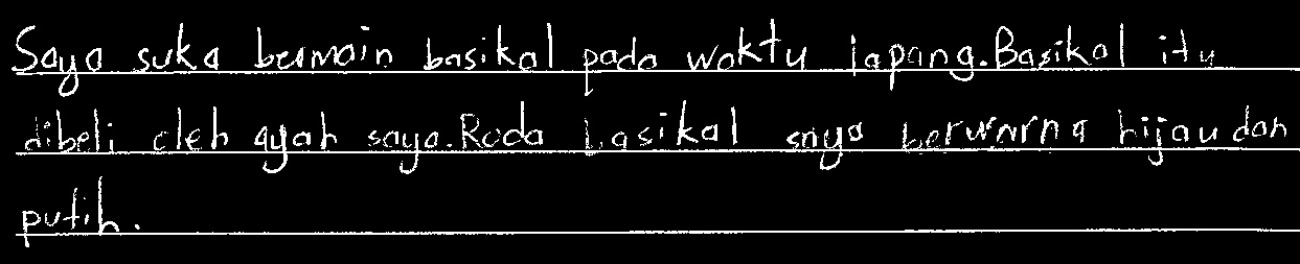 Saya suka bermain basikal pada waktu lapang. Basikal itu
dibeli oleh ayah saya. Roda basikal saya berwarna hijau dan
putih.